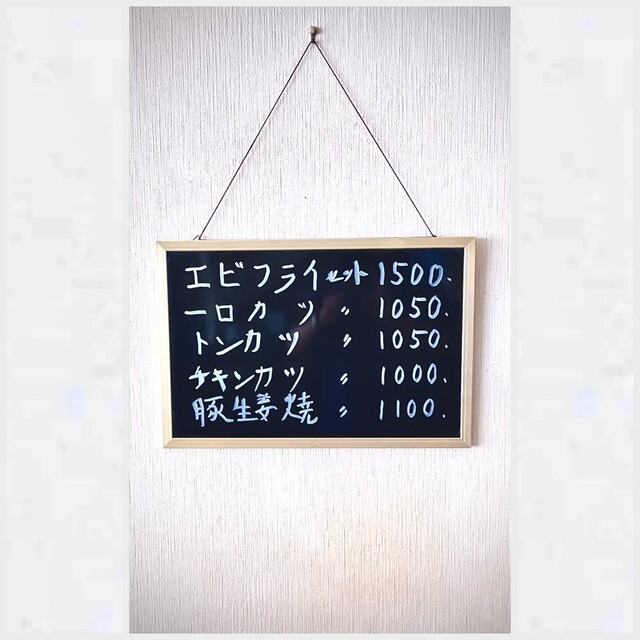 エビフライセット 1500.
一口カツ 〃 1050.
トンカツ 〃 1050.
チキンカツ 〃 1000.
豚生姜焼 〃 1100.